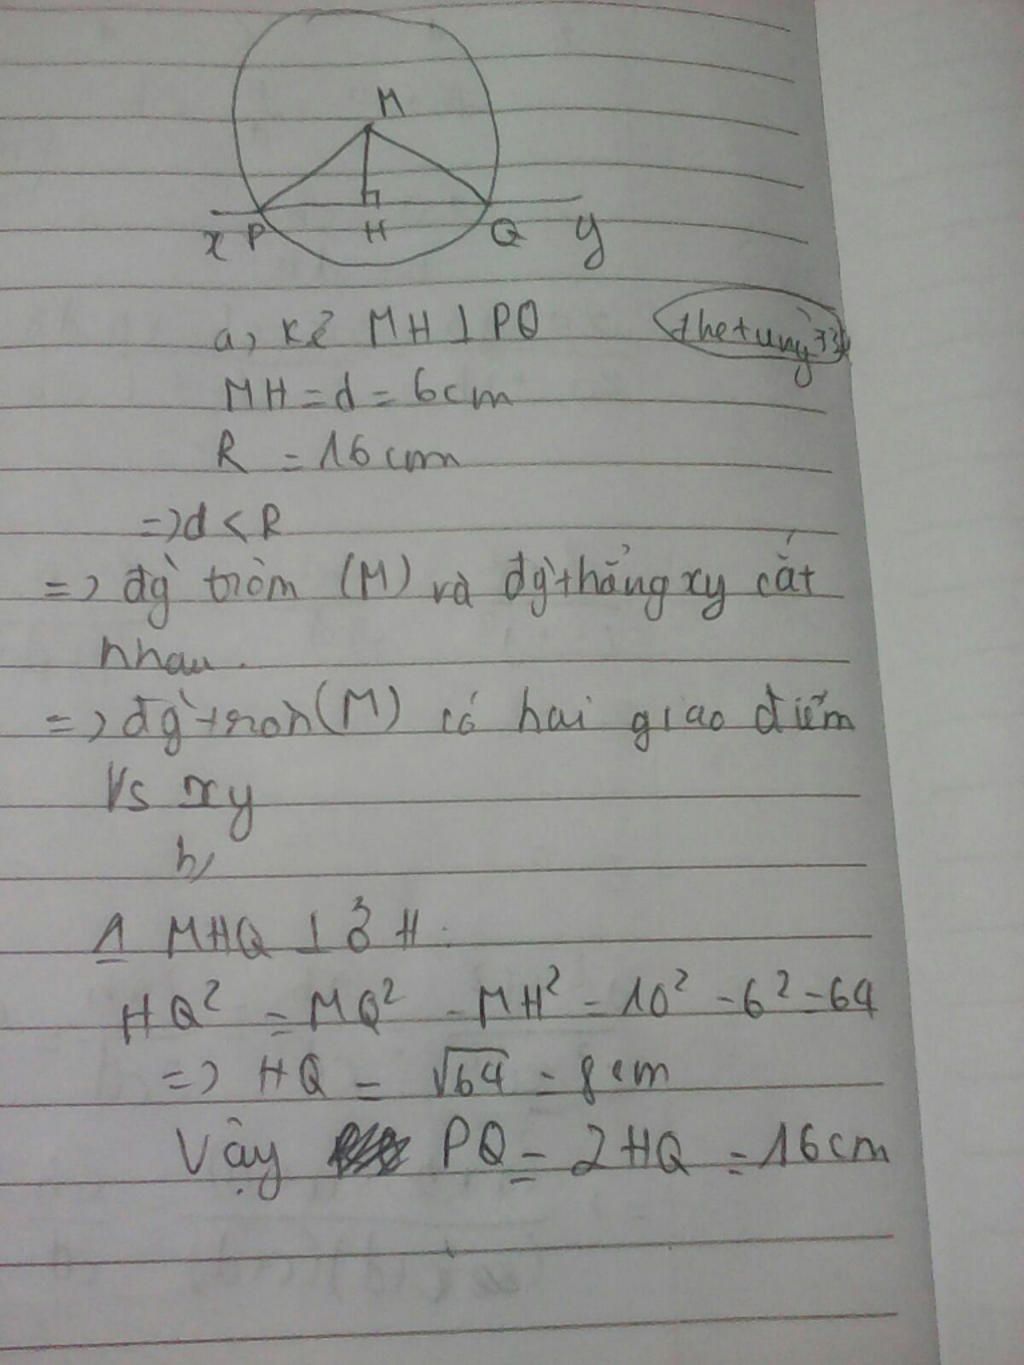 M
x P H Q y
a, kẻ MH ⊥ PQ
thetung73
MH = d = 6cm
R = 16 cm
=> d < R
=> đg̀ tròm (M) và đg̀ thẳng xy cắt
nhau.
=> đg̀ tròn (M) có hai giao điểm
Vs xy
b,
Δ MHQ ⊥ ở H.
HQ² = MQ² - MH² = 10² - 6² = 64
=> HQ = √64 = 8 cm
Vậy PQ = 2HQ = 16cm